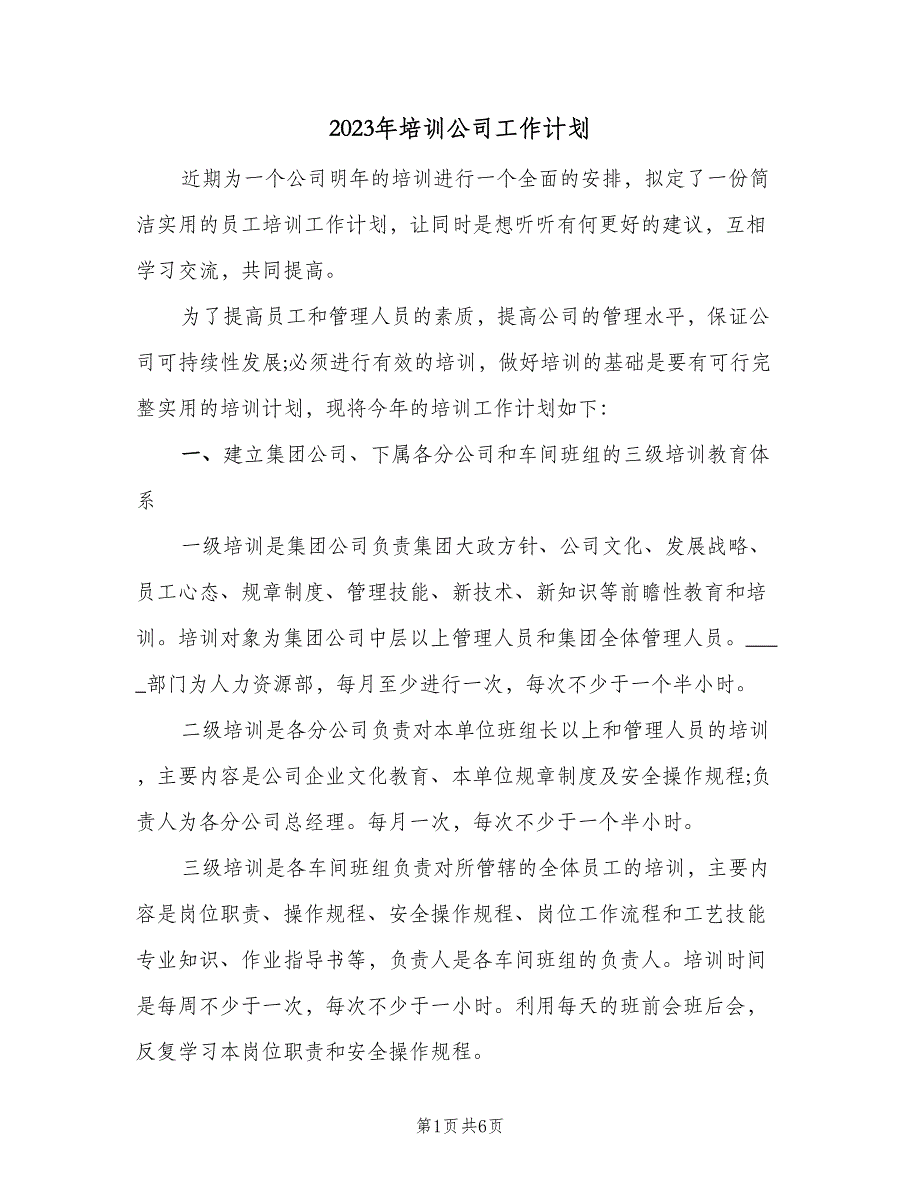 2023年培训公司工作计划
近期为一个公司明年的培训进行一个全面的安排，拟定了一份简
洁实用的员工培训工作计划，让同时是想听听有何更好的建议，互相
学习交流，共同提高。
为了提高员工和管理人员的素质，提高公司的管理水平，保证公
司可持续性发展;必须进行有效的培训，做好培训的基础是要有可行完
整实用的培训计划，现将今年的培训工作计划如下：
一、建立集团公司、下属各分公司和车间班组的三级培训教育体
系
一级培训是集团公司负责集团大政方针、公司文化、发展战略、
员工心态、规章制度、管理技能、新技术、新知识等前瞻性教育和培
训。培训对象为集团公司中层以上管理人员和集团全体管理人员。___
_部门为人力资源部，每月至少进行一次，每次不少于一个半小时。
二级培训是各分公司负责对本单位班组长以上和管理人员的培训
，主要内容是公司企业文化教育、本单位规章制度及安全操作规程;负
责人为各分公司总经理。每月一次，每次不少于一个半小时。
三级培训是各车间班组负责对所管辖的全体员工的培训，主要内
容是岗位职责、操作规程、安全操作规程、岗位工作流程和工艺技能
专业知识、作业指导书等，负责人是各车间班组的负责人。培训时间
是每周不少于一次，每次不少于一小时。利用每天的班前会班后会，
反复学习本岗位职责和安全操作规程。
第1页共6页